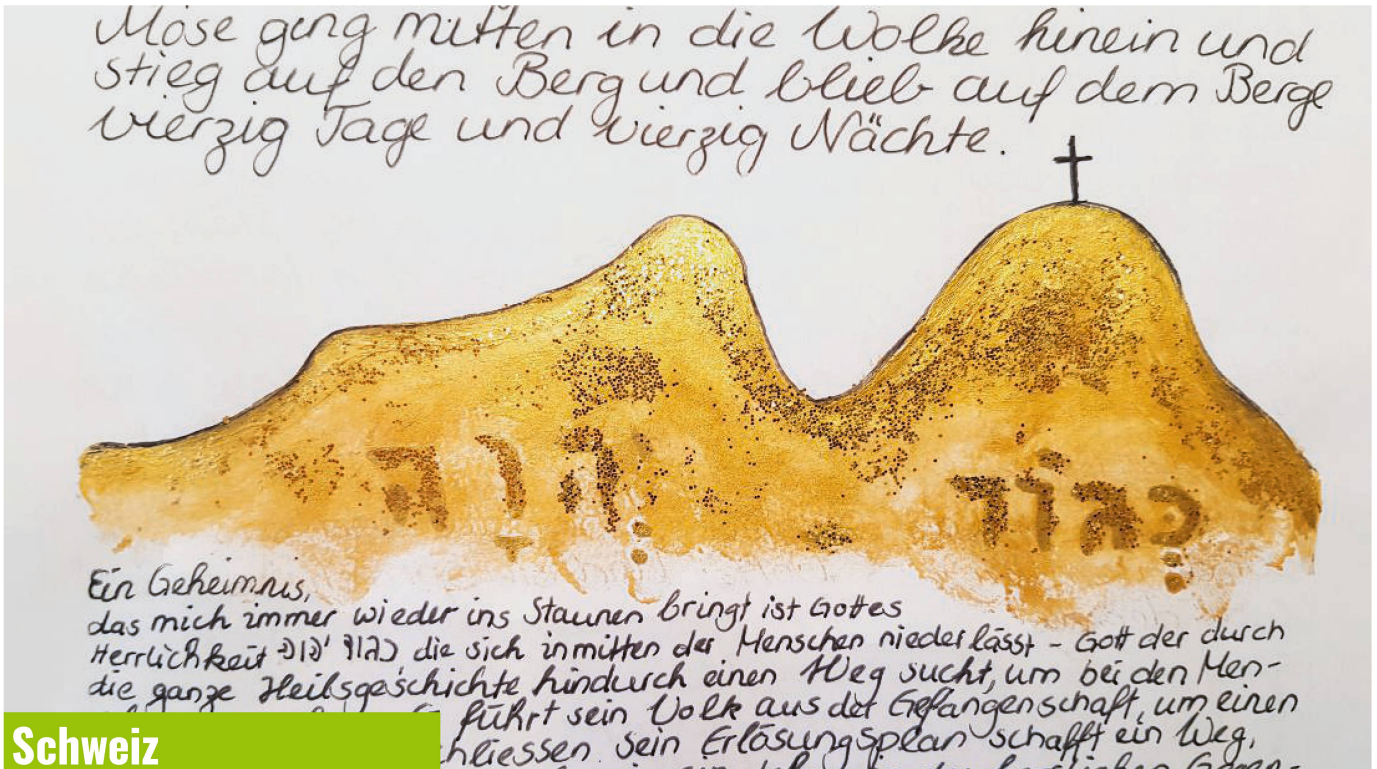 Mose ging mitten in die Wolke hinein und
stieg auf den Berg und blieb auf dem Berge
vierzig Tage und vierzig Nächte.
כְּבוֹד יְהוָה
Ein Geheimnis,
das mich immer wieder ins Staunen bringt ist Gottes
Herrlichkeit die sich inmitten der Menschen niederlässt - Gott der durch
die ganze Heilsgeschichte hindurch einen Weg sucht, um bei den Men-
führt sein Volk aus der Gefangenschaft, um einen
hliessen. Sein Erlösungsplan schafft ein Weg,
Schweiz